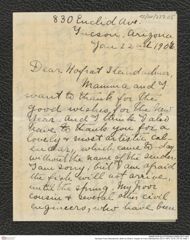 830 Euclid Ave.
Tucson, Arizona
Jan 22nd 1906
Dear Hofrat Steindachner,
Mamma and I
want to thank you for the
good wishes for the New
Year. And I think I also
have to thank you for a
lovely & most artistic cal
endar, which came to-day
without the name of the sender.
I am sorry, but I am afraid
the fish will not arrive,
until the spring. My poor
cousin & several other civil
engineers, who have been